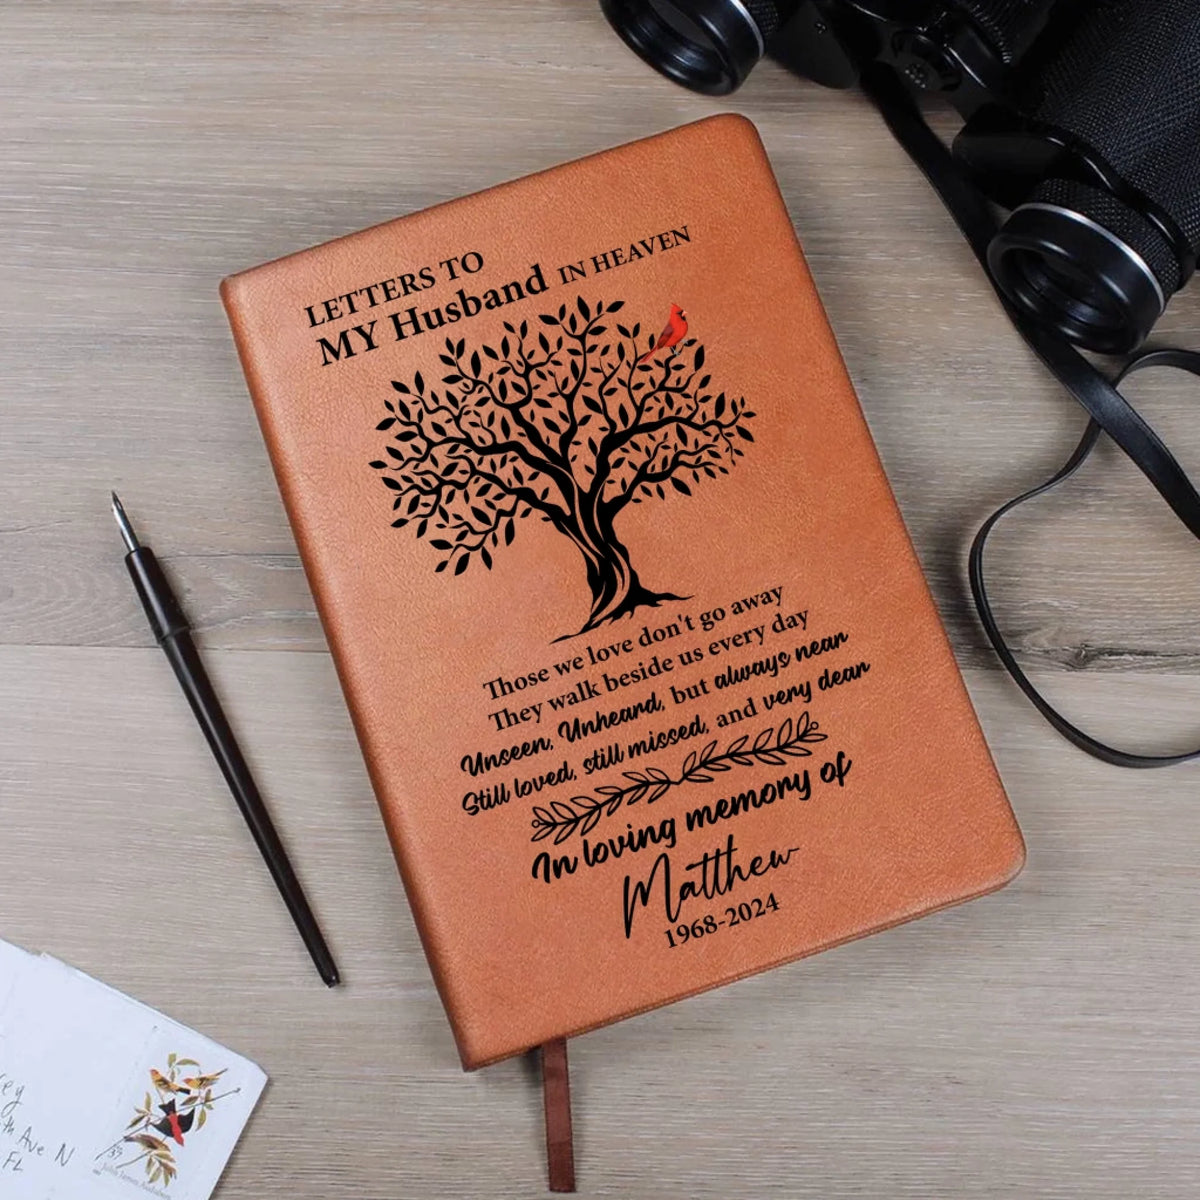 LETTERS TO
MY Husband IN HEAVEN
Those we love don't go away
They walk beside us every day
Unseen, Unheard, but always near
Still loved, still missed, and very dear
In loving memory of
Matthew
1968-2024
Ave N
FL
37
John James Audubon